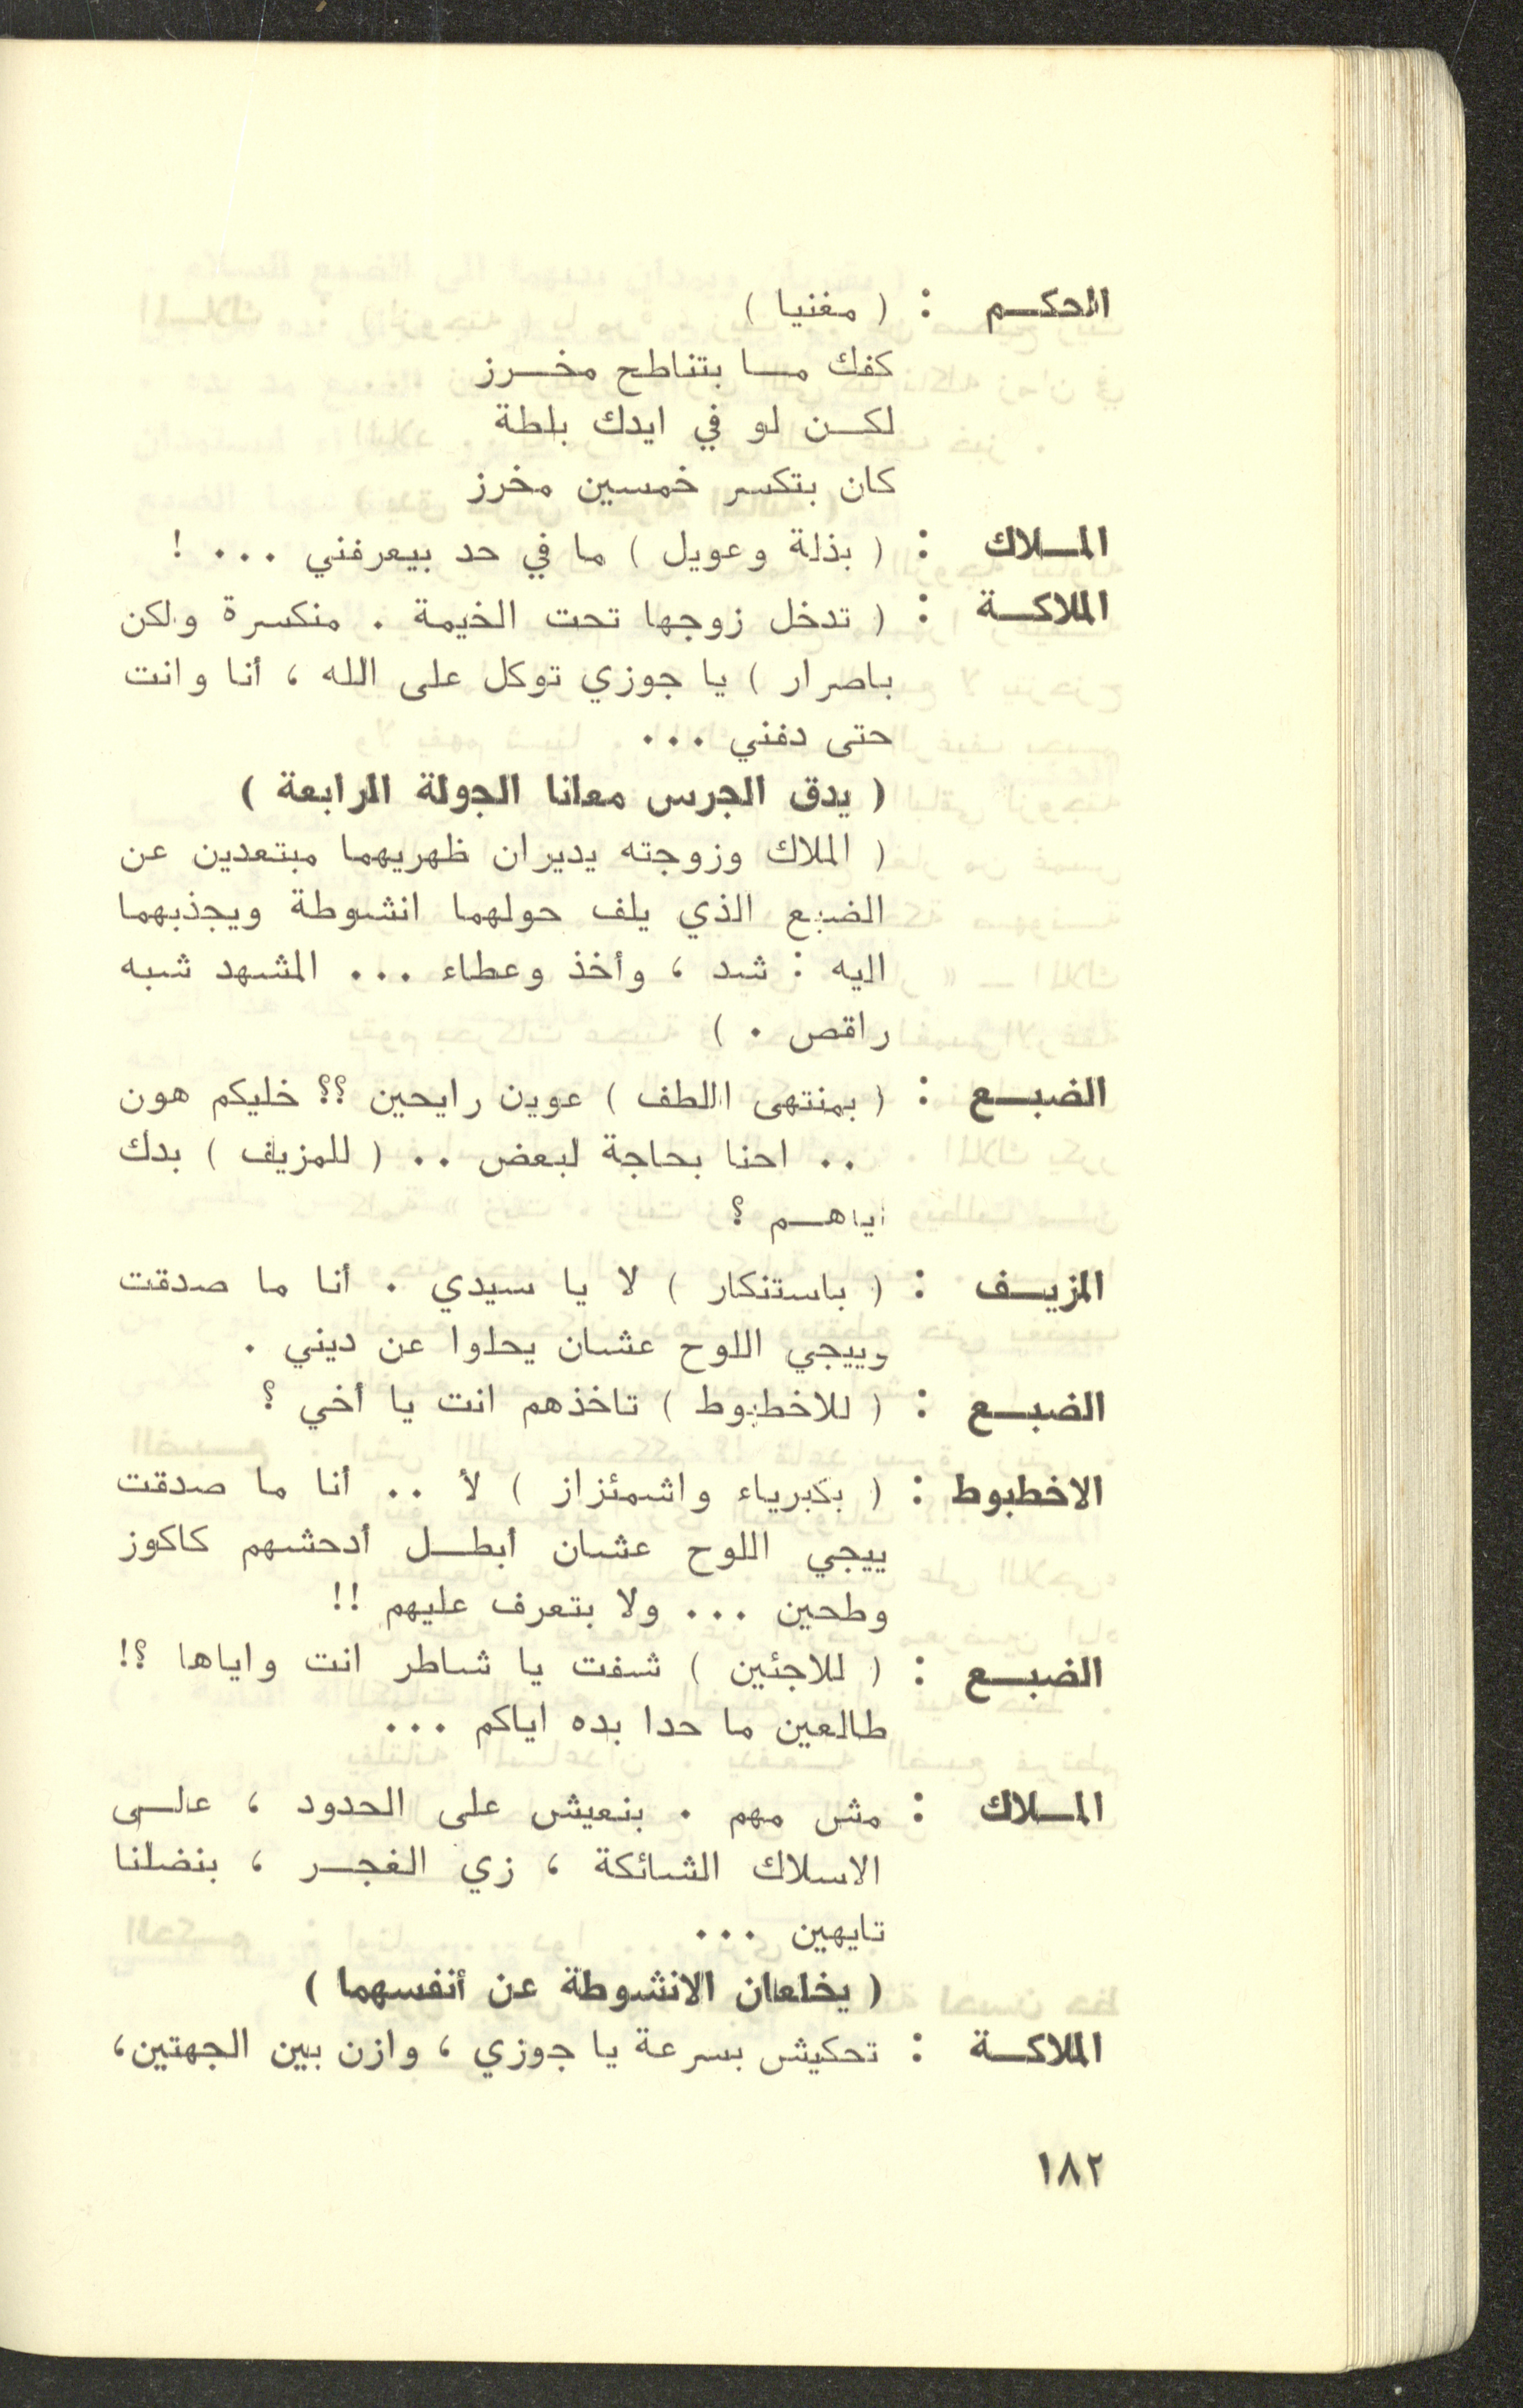 الحكم : ( مغنيا )
كفك ما بتناطح مخرز
لكن لو في ايدك بلطة
كان بتكسر خمسين مخرز
الملاك : ( بذلة وعويل ) ما في حد بيعرفني ... !
الملاكة : ( تدخل زوجها تحت الخيمة . منكسرة ولكن
باصرار ) يا جوزي توكل على الله ، أنا وانت
حتى دفني ...
( يدق الجرس معلنا الجولة الرابعة )
( الملاك وزوجته يديران ظهريهما مبتعدين عن
الضبع الذي يلف حولهما انشوطة ويجذبهما
اليه : شد ، وأخذ وعطاء ... المشهد شبه
راقص . )
الضبع : ( بمنتهى اللطف ) عوين رايحين ؟؟ خليكم هون
.. احنا بحاجة لبعض .. ( للمزيف ) بدك
اياهم ؟
المزيف : ( باستنكار ) لا يا سيدي . أنا ما صدقت
وييجي اللوح عشان يحلوا عن ديني .
الضبع : ( للاخطبوط ) تاخذهم انت يا أخي ؟
الاخطبوط : ( بكبرياء واشمئزاز ) لأ .. أنا ما صدقت
ييجي اللوح عشان أبطل أدحشهم كاكوز
وطحين ... ولا بتعرف عليهم !!
الضبع : ( للاجئين ) شفت يا شاطر انت واياها ؟!
طالعين ما حدا بده اياكم ...
الملاك : مش مهم . بنعيش على الحدود ، على
الاسلاك الشائكة ، زي الغجر ، بنضلنا
تايهين ...
( يخلعان الانشوطة عن أنفسهما )
الملاكة : تحكيش بسرعة يا جوزي ، وازن بين الجهتين،
١٨٢